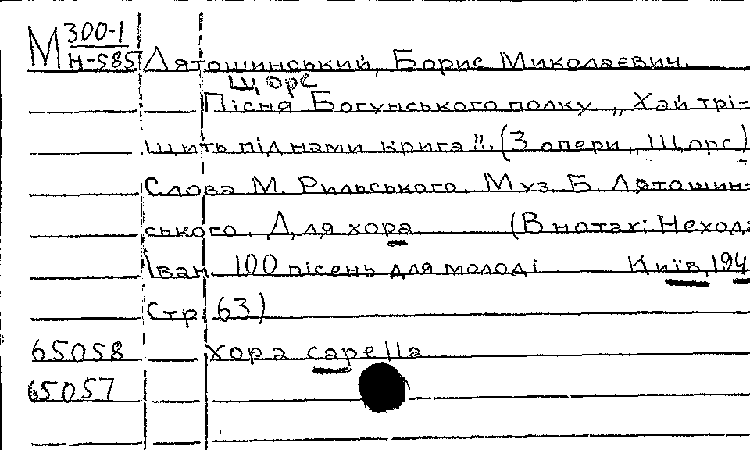 М 300-1
Н-585 Лятошинський, Борис Миколаєвич.
Щорс
Пісня Богунського полку „Хай трі-
щить під нами крига". (З опери „Щорс)
Слова М. Рильського. Муз. Б. Лятошин-
ського. Для хора (В нотах: Нехода
Іван. 100 пісень для молоді Київ, 194
Стр. 63)
65058 хор a capella
65057